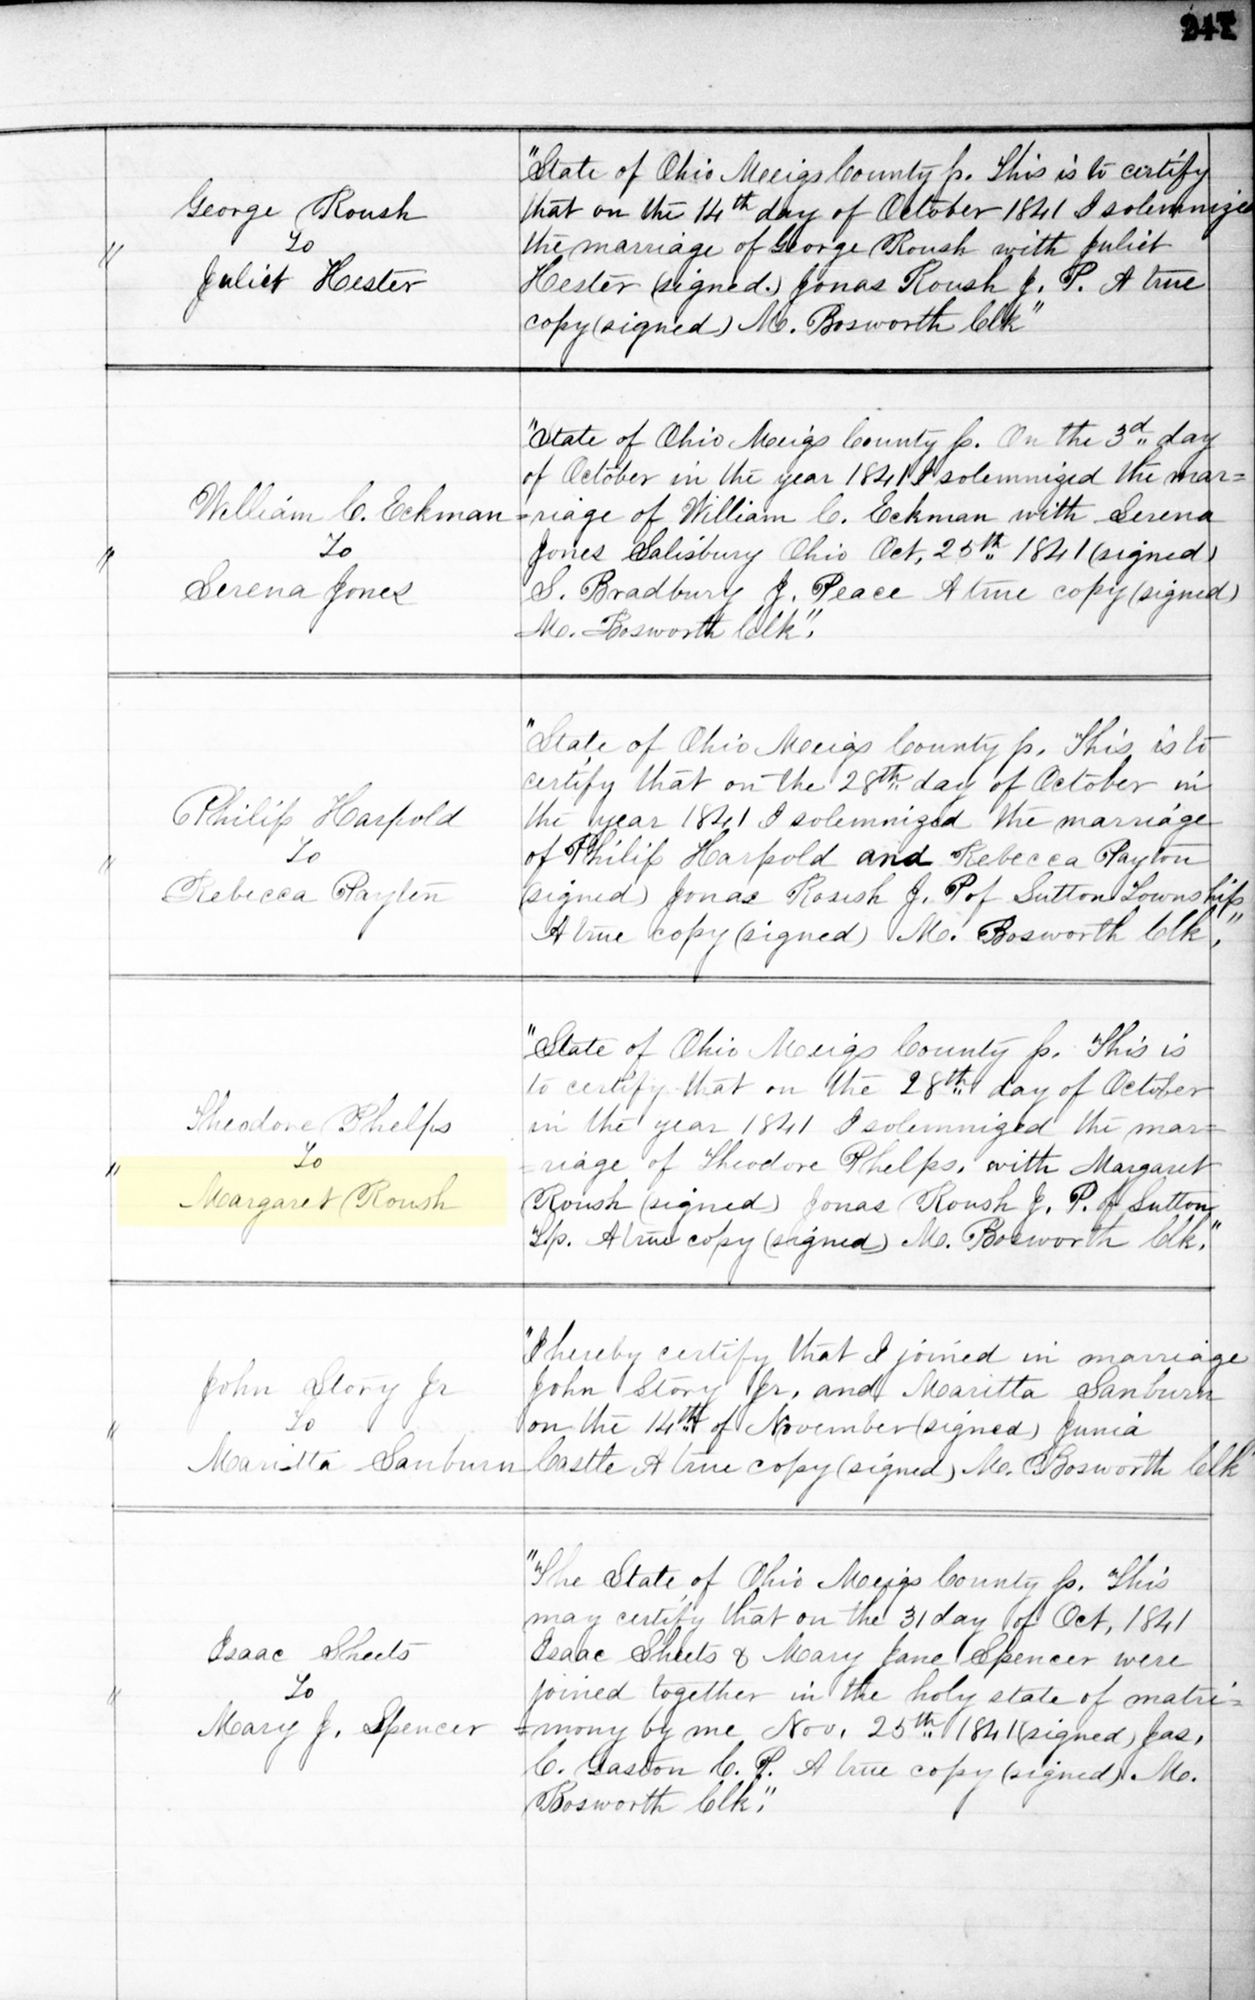 247
George Roush
To
Juliet Hester
"State of Ohio Meigs County ss. This is to certify
that on the 14th day of October 1841 I solemnize
the marriage of George Roush with Juliet
Hester (signed.) Jonas Roush J. P. A true
copy (signed) M. Bosworth Clk"
"
William C. Eckman
To
Serena Jones
"State of Ohio Meigs County ss. On the 3d day
of October in the year 1841 I solemnized the mar=
=riage of William C. Eckman with Serena
Jones Salisbury Ohio Oct, 25th 1841 (signed)
S. Bradbury J. Peace A true copy (signed)
M. Bosworth Clk".
"
Philip Harpold
To
Rebecca Payton
"State of Ohio Meigs County ss. This is to
certify that on the 28th day of October in
the year 1841 I solemnized the marriage
of Philip Harpold and Rebecca Payton
(signed) Jonas Roush J. P of Sutton Township
A true copy (signed) M. Bosworth Clk."
"
Theodore Phelps
To
Margaret Roush
"State of Ohio Meigs County ss. This is
to certify that on the 28th day of October
in the year 1841 I solemnized the mar=
=riage of Theodore Phelps. with Margaret
Roush (signed) Jonas Roush J. P. of Sutton
Tp. A true copy (signed) M. Bosworth Clk."
"
John Story Jr
To
Maritta Sanburn
"I hereby certify that I joined in marriage
John Story Jr. and Maritta Sanburn
on the 14th of November (signed) Junia
Castle A true copy (signed) M. Bosworth Clk
"
Isaac Sheets
To
Mary J. Spencer
"The State of Ohio Meigs County ss. This
may certify that on the 31 day of Oct, 1841
Isaac Sheets & Mary Jane Spencer were
joined together in the holy state of matri=
=mony by me Nov. 25th 1841 (signed) Jas.
C. Gaston C. P. A true copy (signed) M.
Bosworth Clk".
"